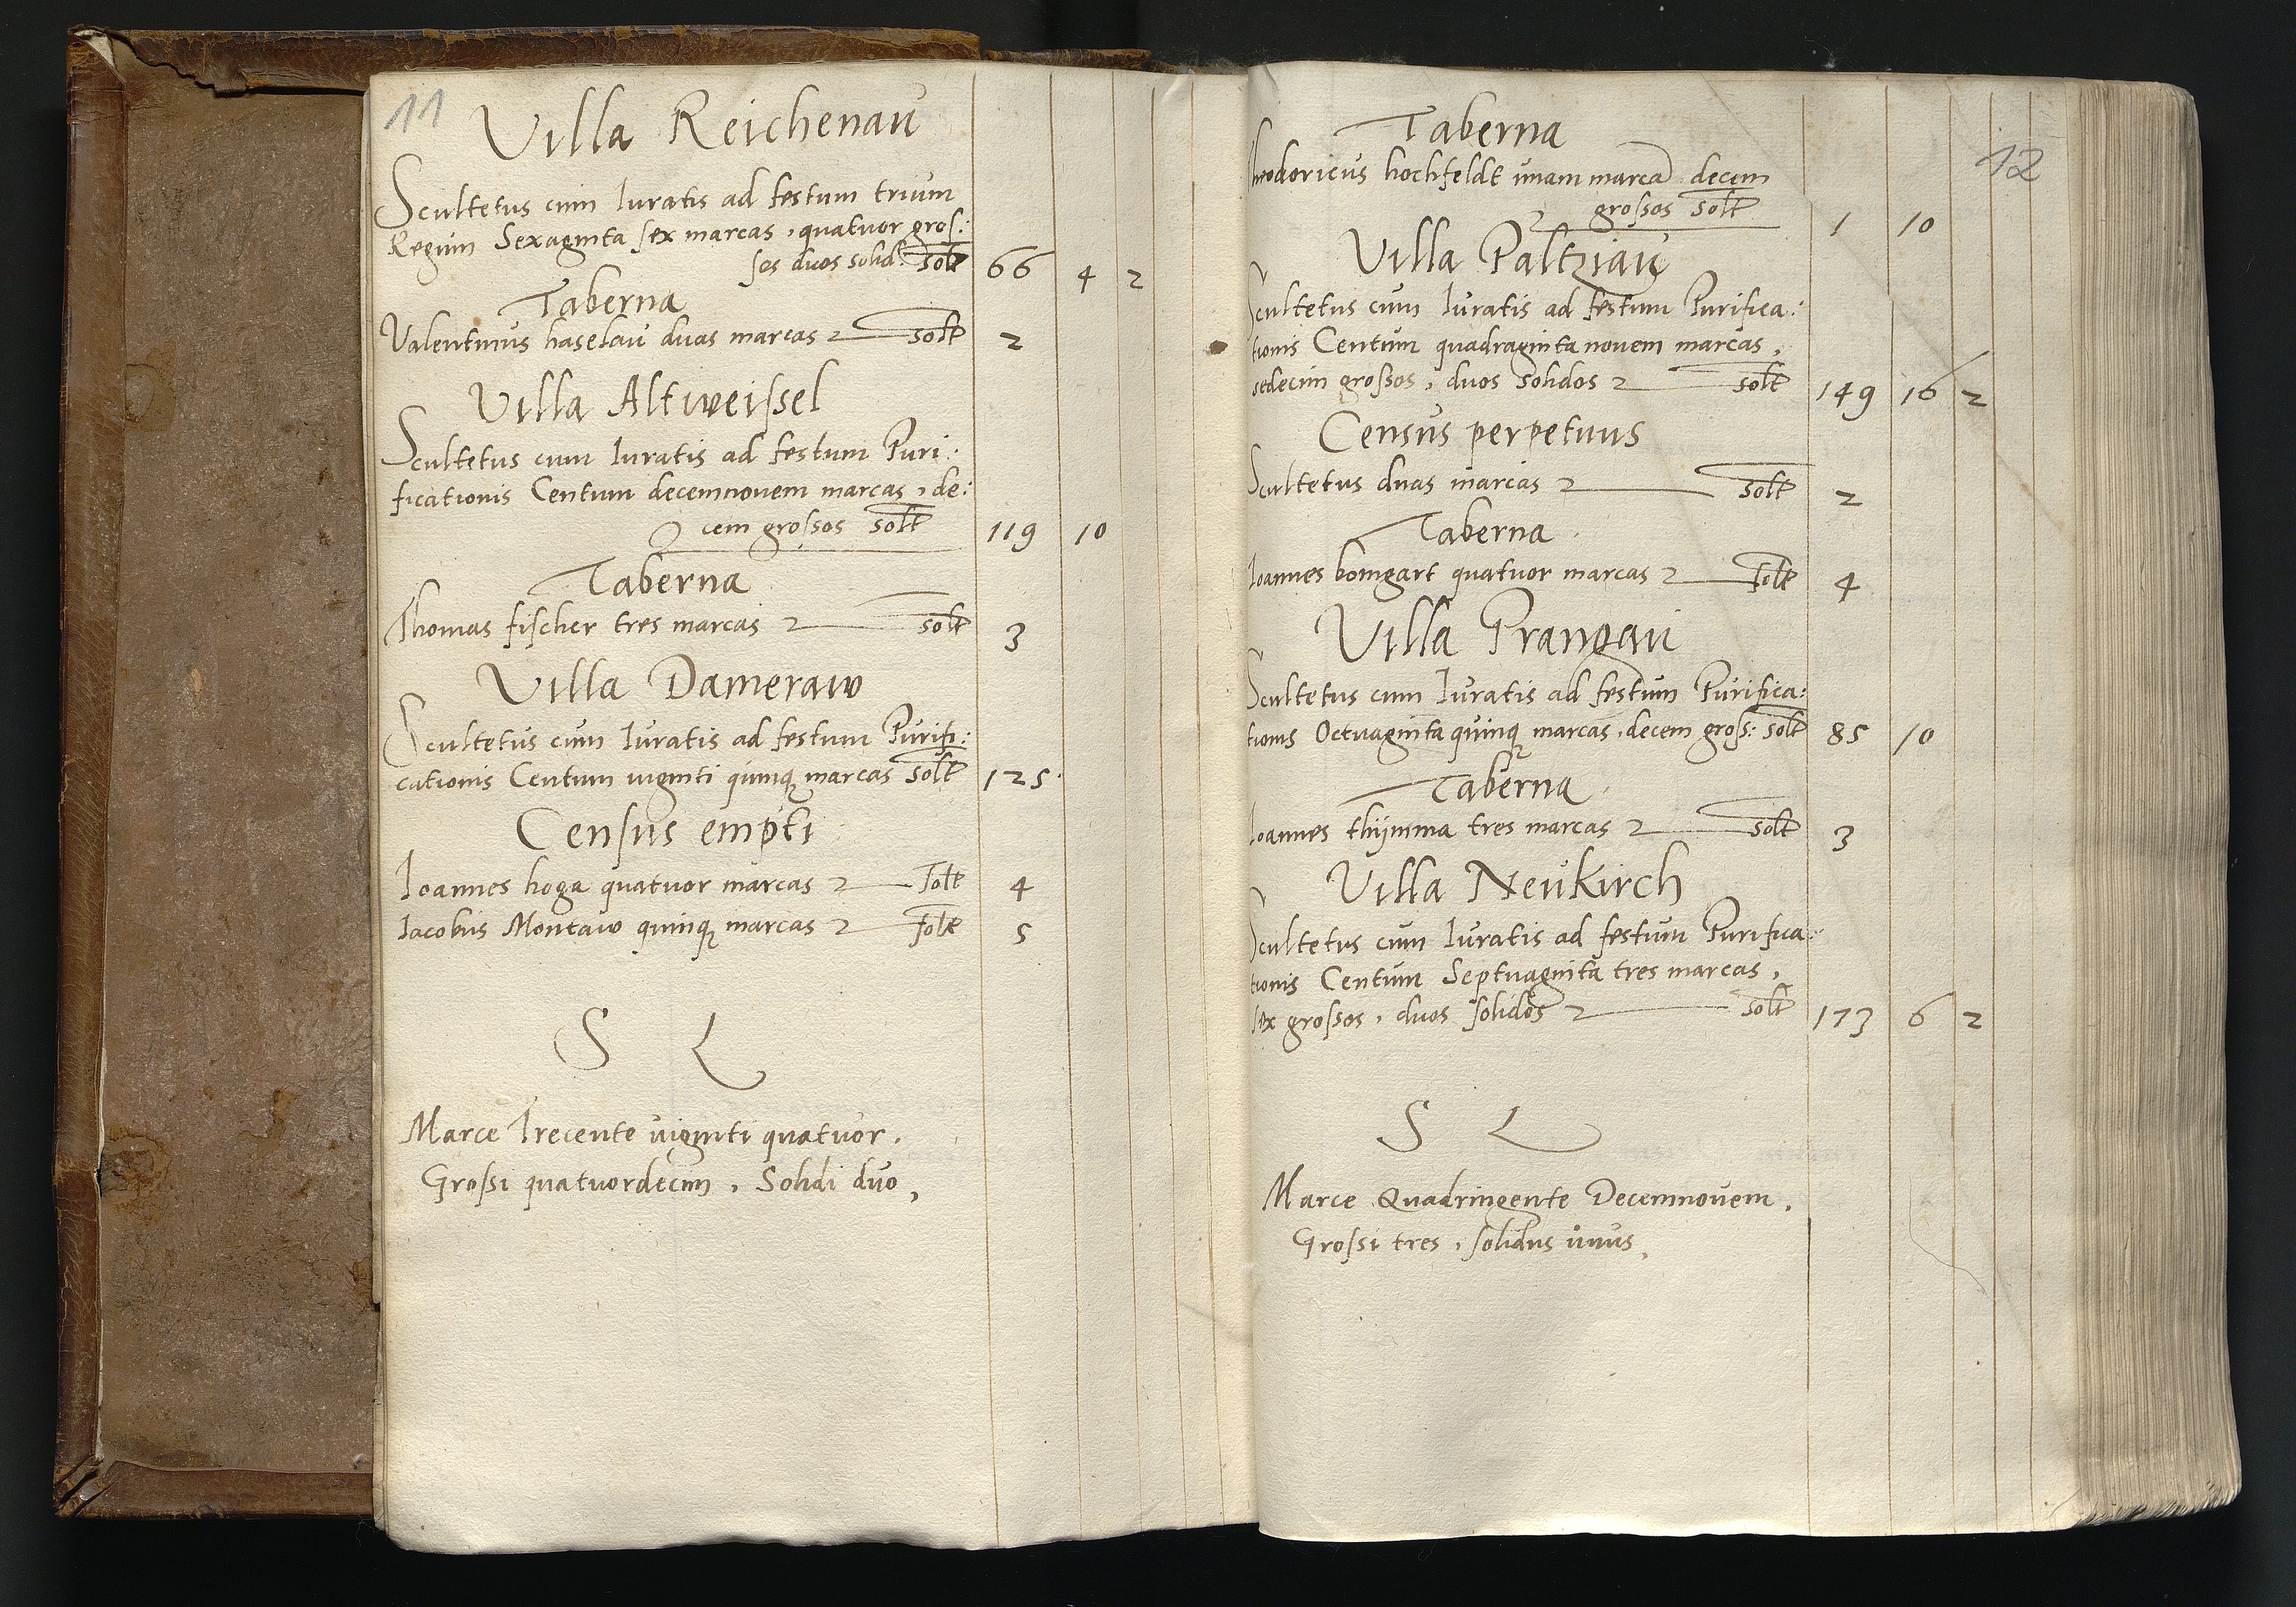 11
Villa Reichenau
Scultetus cum Iuratis ad festum trium
Regum Sexaginta sex marcas, quatuor gros:
sos duos solid: solt 66 4 2
Taberna
Valentinus haselau duas marcas solt 2
Villa Altweissel
Scultetus cum Iuratis ad festum Puri:
ficationis Centum decemnovem marcas, de:
cem grossos solt 119 10
Taberna
Thomas fischer tres marcas solt 3
Villa Dameraw
Scultetus cum Iuratis ad festum Purifi:
cationis Centum viginti quinq marcas solt 125
Census empti
Ioannes hoga quatuor marcas solt 4
Iacobus Montaw quinq marcas solt 5
S L
Marce Trecente viginti quatuor.
Grossi quatuordecim, Solidi duo,
12
Taberna
heodoricus hochfeldt unam marca decem
grossos solt 1 10
Villa Paltziau
Scultetus cum Iuratis ad festum Purifica:
tionis Centum quadraginta novem marcas,
sedecim grossos, duos solidos solt 149 16 2
Census perpetuus
Scultetus duas marcas solt 2
Taberna
Ioannes bomgart quatuor marcas solt 4
Villa Prangau
Scultetus cum Iuratis ad festum Purifica:
tionis Octuaginta quinq marcas, decem gross: solt 85 10
Taberna
Ioannes thijmma tres marcas solt 3
Villa Neukirch
Scultetus cum Iuratis ad festum Purifica:
tionis Centum Septuaginta tres marcas,
sex grossos, duos solidos solt 173 6 2
S L
Marce Quadringente Decemnovem.
Grossi tres, solidus unus,